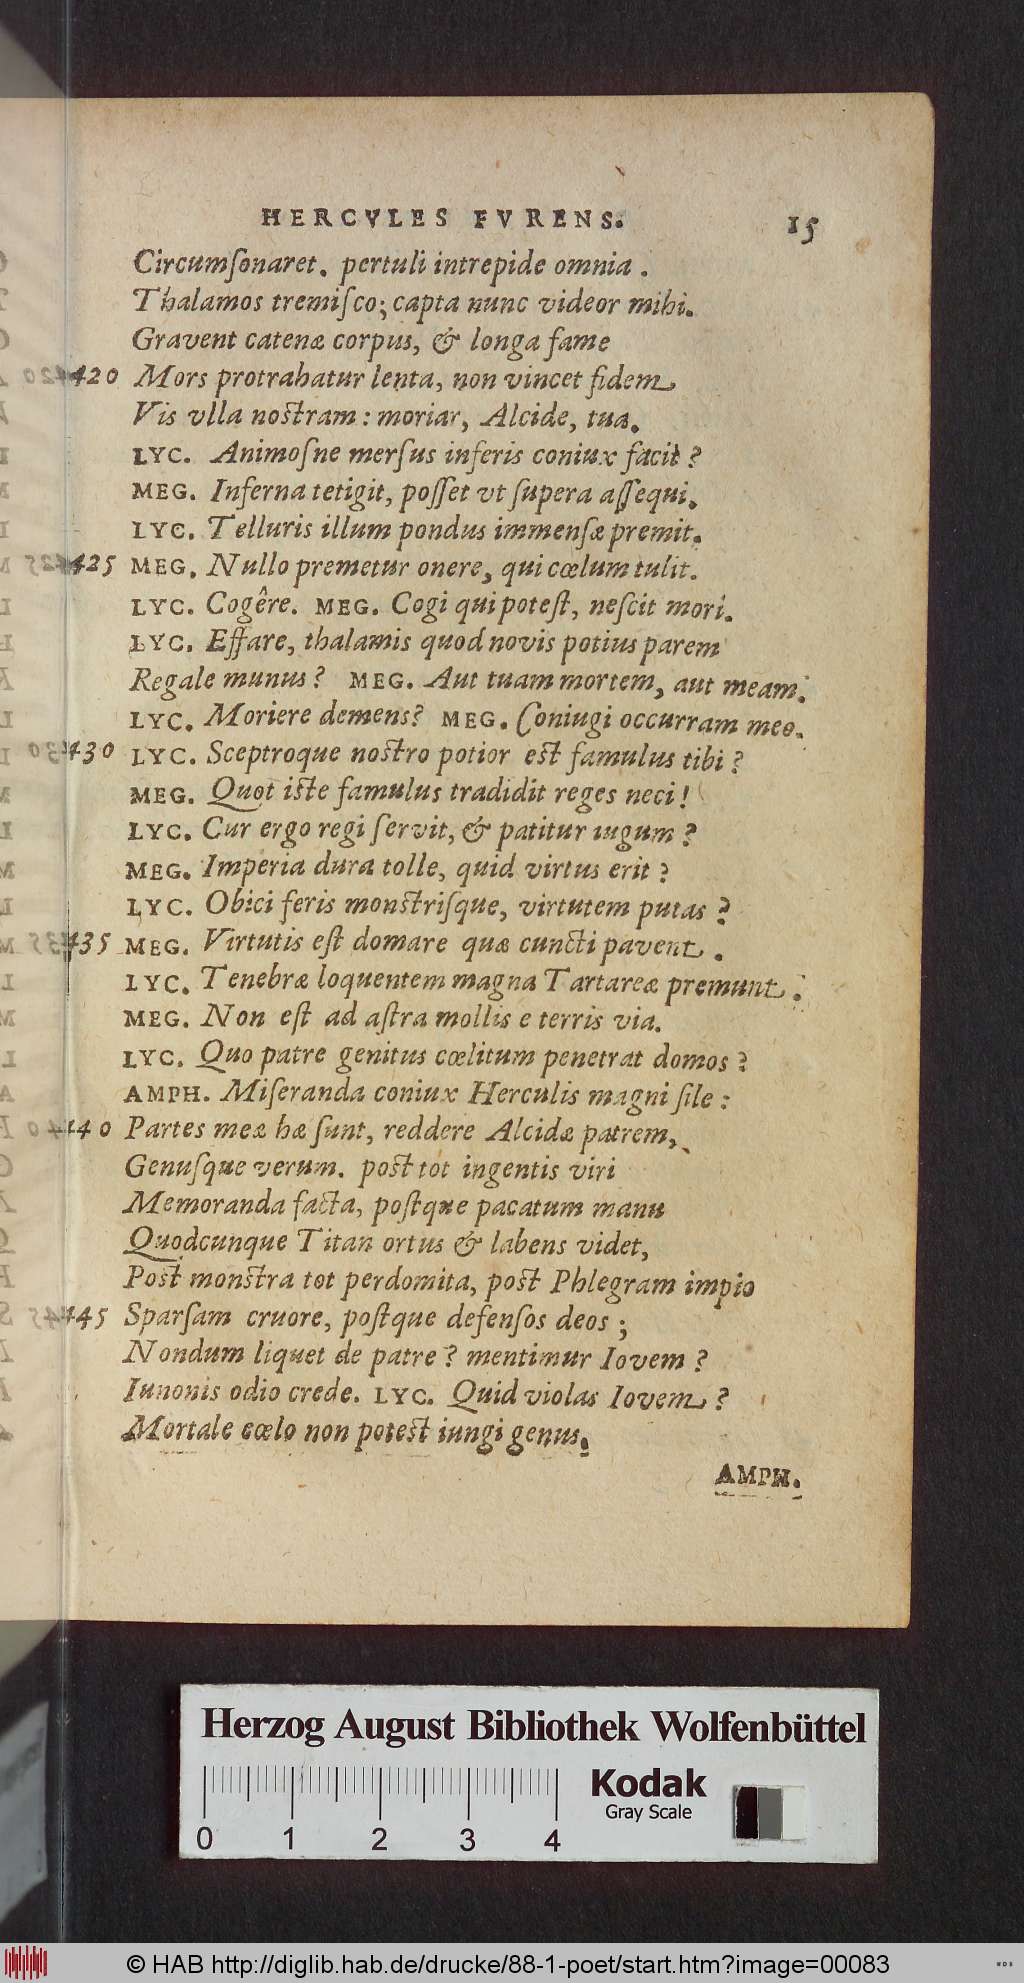 HERCVLES FVRENS. 15
Circumſonaret. pertuli intrepide omnia.
Thalamos tremiſco; capta nunc videor mihi.
Gravent catenæ corpus, & longa fame
420 Mors protrahatur lenta, non vincet fidem
Vis vlla noſtram: moriar, Alcide, tua.
LYC. Animoſne merſus inferis coniux facit?
MEG. Inferna tetigit, poſſet vt ſupera aſſequi.
LYC. Telluris illum pondus immenſæ premit.
425 MEG. Nullo premetur onere, qui cœlum tulit.
LYC. Cogêre. MEG. Cogi qui poteſt, neſcit mori.
LYC. Effare, thalamis quod novis potius parem
Regale munus? MEG. Aut tuam mortem, aut meam.
LYC. Moriere demens? MEG. Coniugi occurram meo.
430 LYC. Sceptroque noſtro potior eſt famulus tibi?
MEG. Quot iſte famulus tradidit reges neci!
LYC. Cur ergo regi ſervit, & patitur iugum?
MEG. Imperia dura tolle, quid virtus erit?
LYC. Obici feris monſtriſque, virtutem putas?
435 MEG. Virtutis eſt domare quæ cuncti pavent.
LYC. Tenebræ loquentem magna Tartareæ premunt.
MEG. Non eſt ad aſtra mollis e terris via.
LYC. Quo patre genitus cœlitum penetrat domos?
AMPH. Miſeranda coniux Herculis magni ſile:
440 Partes meæ hæ ſunt, reddere Alcidæ patrem,
Genuſque verum. poſt tot ingentis viri
Memoranda facta, poſtque pacatum manu
Quodcunque Titan ortus & labens videt,
Poſt monſtra tot perdomita, poſt Phlegram impio
445 Sparſam cruore, poſtque defenſos deos;
Nondum liquet de patre? mentimur Iovem?
Iunonis odio crede. LYC. Quid violas Iovem?
Mortale cœlo non poteſt iungi genus.
AMPH.
Herzog August Bibliothek Wolfenbüttel
Kodak
Gray Scale
0 1 2 3 4
© HAB http://diglib.hab.de/drucke/88-1-poet/start.htm?image=00083